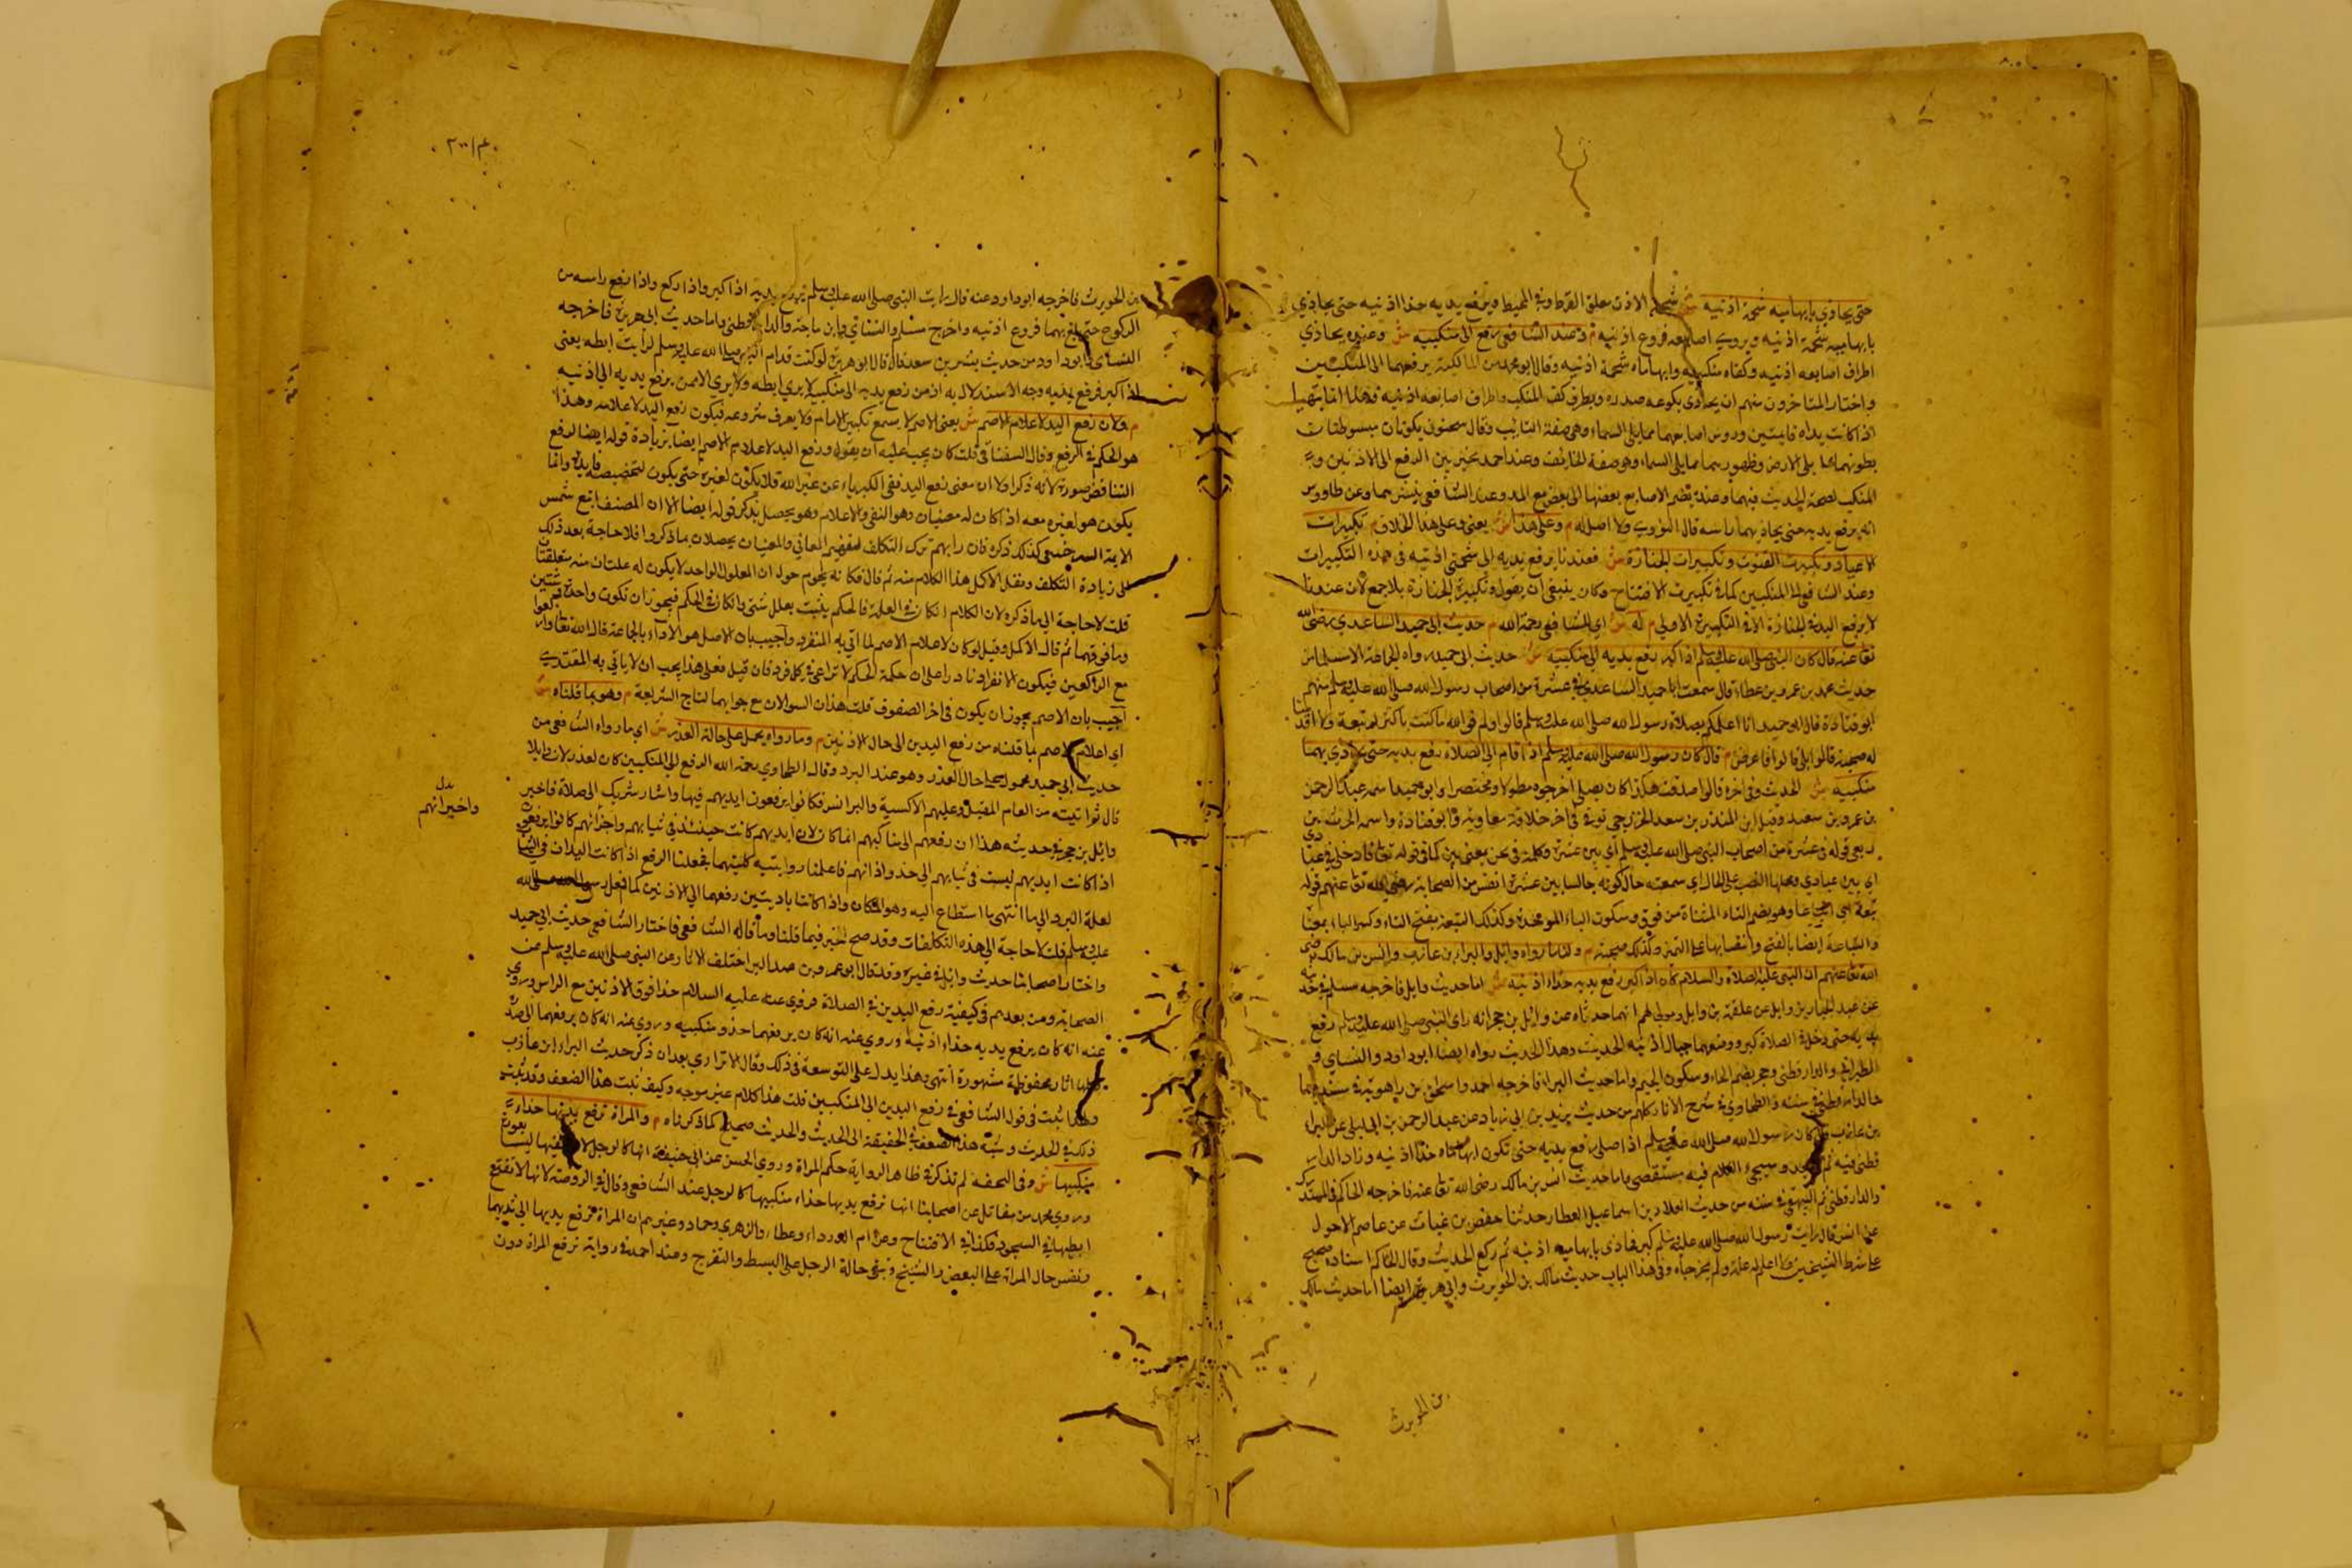 حتى يحاذي بابهاميه شحمة اذنيه ش شحمة الاذن معلق القرط وفي المحيط ويرفع يديه حذا اذنيه حتى يحاذي
بابهاميه شحمة اذنيه وبروس اصابعه فروع اذنيه م وعند الشافعي يرفع الى منكبيه ش وعنده يحاذي
اطراف اصابعه اذنيه وكفاه منكبيه وابهاماه شحمة اذنيه وقال ابو محمد من المالكية يرفعهما الى المنكبين
واختار المتاخرون منهم ان يحاذي بكوعه صدره وبطرف كفه المنكب وباطراف اصابعه اذنيه وهذا انما يتهيا
اذا كانت يداه قايمتين وروس اصابعهما مما يلي السماء وهي صفة التايب وقال سحنون يكونان مبسوطتان
بطونهما مما يلي الارض وظهورهما مما يلي السماء وهو صفة الخايف وعند احمد يخير بين الرفع الى الاذنين و
المنكب لصحة الحديث فيهما وعنده يضم الاصابع بعضها الى بعض مع المد وعند الشافعي ينشرهما وعن طاووس
انه يرفع يديه حتى يحاذ بهما راسه قال النووي ولا اصل له م وعلى هذا ش يعني وعلى هذا الخلاف م تكبيرات
الاعياد وتكبيرت القنوت وتكبيرات الجنازة ش فعندنا يرفع يديه الى شحمتي اذنيه في هذه التكبيرات
وعند الشافعي الى المنكبين كما في تكبيرت الافتتاح وكان ينبغي ان يقول وتكبيرة الجنازة بلا جمع لان عندنا
لا يرفع اليد في الجنازة الا في التكبيرة الاولى م له ش اي للشافعي رحمة الله م حديث ابي حميد الساعدي رضى الله
تعا عنه قال كان النبي صلى الله عليه وسلم اذا كبر رفع يديه الى منكبيه ش حديث ابي حميد رواه الجماعة الا مسلما من
حديث محمد بن عمرو بن عطاء قال سمعت ابا حميد الساعدي في عشرة من اصحاب رسول الله صلى الله عليه وسلم منهم
ابو قتادة قال ابو حميد انا اعلمكم بصلاة رسول الله صلى الله عليه وسلم قالوا ولم فو الله ما كنت باكثر له تبعة ولا اقدمنا
له صحبة قالوا بلى قالوا فاعرض م قال كان رسول الله صلى الله عليه وسلم اذا قام الى الصلاة رفع يديه حتى يحاذي بهما
منكبيه ش الحديث وفي اخره قالوا صدقت هكذا كان يصلي اخرجوه مطولا ومختصرا وابو حميد اسمه عبد الرحمن
بن عمرو بن سعد وقيل ابن المنذر بن سعد الخزرجي توفي في اخر خلافة معاوية وابو قتادة واسمه الحرث بن
ربعي قوله في عشرة من اصحاب النبي صلى الله عليه وسلم اي بين عشرة وكلمة في عن بمعنى بين كما في قوله تعا فادخلي في عبادي
اي بين عبادي ومحلها النصب على الحال اي سمعته حال كونه جالسا بين عشرة انفس من الصحابة رضي الله تعا عنهم قوله
تبعة اي اتباعا وهو بضم التاء المثناة من فوق وسكون الباء الموحدة وكذلك التبعة بفتح التاء وكسر الباء بمعنا
والتباعة ايضا بالفتح وانتصابها على التميز وكذلك صحبة م ولنا ما رواه وايل والبراء بن عازب وانس بن مالك رضى
الله تعا عنهم ان النبي عليه الصلاة والسلام كان اذا كبر رفع يديه حذاء اذنيه ش اما حديث وايل فاخرجه مسلم في
عن عبد الجبار بن وايل عن علقمة بن وايل ومولى لهم انهما حدثاه عن وائل بن حجر انه راى النبي صلى الله عليه وسلم رفع
يديه حتى دخل في الصلاة كبر ووضعهما حيال اذنيه الحديث وهذا الحديث رواه ايضا ابو داود والنساي و
الطبراني والدارقطني وحجر بضم الحاء وسكون الجيم واما حديث البراء فاخرجه احمد واسحق بن راهويه في مسنديهما
والدارقطني في سننه والطحاوي في شرح الاثار كلهم من حديث يزيد بن ابي زياد عن عبد الرحمن بن ابي ليلى عن البراء
بن عازب قال كان رسول الله صلى الله عليه وسلم اذا صلى رفع يديه حتى تكون ابهاماه حذا اذنيه وزاد الدار
قطني فيه ثم لم يعد وسيجئ الكلام فيه مستقصى واما حديث انس بن مالك رضى الله تعا عنه فاخرجه الحاكم في المستدرك
والدارقطني ثم البيهقي في سننه من حديث العلاء بن اسماعيل العطار حدثنا حفص بن غياث عن عاصم الاحول
عن انس قال رايت رسول الله صلى الله عليه وسلم كبر فحاذى بابهاميه اذنيه ثم ركع الحديث وقال الحاكم اسناده صحيح
على شرط الشيخين ولا اعلم له علة ولم يخرجاه وفي هذا الباب حديث مالك بن الحويرث وابي هريرة ايضا اما حديث مالك
بن الحويرث
بن الحويرث فاخرجه ابو داود عنه قال رايت النبي صلى الله عليه وسلم يرفع يديه اذا كبر واذا ركع واذا رفع راسه من
الركوع حتى بلغ بهما فروع اذنيه واخرج مسلم والنسائي وابن ماجة والدارقطني واما حديث ابي هريرة فاخرجه
النساى وابو داود من حديث بشر بن سعد قال قال ابو هريرة لو كنت قدام النبي صلى الله عليه وسلم لرايت ابطه يعنى
اذا كبر فرفع يديه وجه الاستدلال به ان من رفع يديه الى منكبيه لا يرى ابطه ولا يرى الا من يرفع يديه الى اذنيه
م ولان رفع اليد لاعلام الاصم ش يعنى الاصم لا يسمع تكبير الامام ولا يعرف شروعه فيكون رفع اليد لاعلامه وهذا
هو الحكم في الرفع وقال السغناقي قلت كان يجب عليه ان يقول ورفع اليد لاعلام الاصم ايضا بزيادة قوله ايضا لرفع
التناقض صورة لانه ذكر اولا ان معنى رفع اليد نفي الكبرياء عن غير الله فلا يكون لغيره حتى يكون لتخصيصه فايدة وانما
يكون هو لغيره معه اذا كان له معنيان وهو النفي والاعلام وهو يحصل بذكر قوله ايضا الا ان المصنف اتبع شمس
الايمة السرخسي كذلك ذكره فان رابهم ترك التكلف المعاني والمعنيان يحصلان بما ذكروا فلا حاجة بعد ذلك
الى زيادة التكلف ونقل الاكمل هذا الكلام منه ثم قال فكانه يحوم حول ان المعلول الواحد لا يكون له علتان
قلت لا حاجة الى ما ذكره لان الكلام ان كان في العلة فالحكم يثبت بعلل شتى وان كان في الحكم فيجوز ان تكون واحدة
وما فوقهما ثم قال الاكمل وقيل لو كان لاعلام الاصم لما اتي به المنفرد واجيب بان الاصل هو الاداء بالجماعة قال الله تعا واركعوا
مع الراكعين فيكون الانفراد نادرا على ان حكمة الحكم لا تراعى في كل فرد فان قيل فعلى هذا يجب ان لا ياتي به المقتدي
اجيب بان الاصم يجوز ان يكون في اخر الصفوف قلت هذان السوالان مع جوابهما لتاج الشريعة م وهو بما قلناه ش
اي اعلام الاصم بما قلناه من رفع اليدين الى حال الاذنين م وما رواه يحمل على حالة العذر ش اي ما رواه الشافعي من
حديث ابي حميد محمول على حال العذر وهو عند البرد وقال الطحاوي رحمه الله الرفع الى المنكبين كان لعذر لان وايلا
قال ثم اتيته من العام المقبل وعليهم الاكسية والبرانس فكانوا يرفعون ايديهم فيها واشار شريك الى صلاة فاخبر
وائل بن حجر في حديثه هذا ان رفعهم الى مناكبهم انما كان لان ايديهم كانت حينئذ في ثيابهم واخبر انهم كانوا يرفعون
اذا كانت ايديهم ليست في ثيابهم الى حذو اذانهم فاعلمنا روايتيه كلتيهما فجعلنا الرفع اذا كانت اليدان في الثياب
لعلة البرد الى ما انتهى ما استطاع اليه وهو المنكبان واذا كانتا باديتين رفعهما الى الاذنين كما فعل رسول الله صلى الله
عليه وسلم قلت لا حاجة الى هذه التكلفات وقد صح الخبر فيما قلنا وما قاله الشافعي فاختار الشافعي حديث ابي حميد
واختار اصحابنا حديث وائل وغيره وقد قال ابو عمرو بن عبد البر اختلف الاثار عن النبي صلى الله عليه وسلم عن
الصحابة ومن بعدهم في كيفية رفع اليدين في الصلاة فروي عنه عليه السلام حذا فوق الاذنين مع الراس وروي
عنه انه كان يرفع يديه حذاء اذنيه وروي عنه انه كان يرفعهما حذو منكبيه وروي عنه انه كان يرفعهما الى صدره
وكلها اثار محفوظة مشهورة انتهى وهذا يدل على التوسعة في ذلك وقال الاترازي بعد ان ذكر حديث البراء ابن عازب
وبهذا يثبت في قول الشافعي في رفع اليدين الى المنكبين قلت هذا كلام غير موجه وكيف يثبت هذا الضعف وقد ثبت
ذلك في الحديث ونسبة هذا الضعف في الحقيقة الى الحديث والحديث صحيح كما ذكرناه م والمراة ترفع يديها حذاء
منكبيها ش وفي التحفة لم تذكر في ظاهر الرواية حكم المراة وروى الحسن عن ابي حنيفة انها كالرجل لان كفيها ليستا بعورة
وروي محمد من مقاتل عن اصحابنا انها ترفع يديها حذاء منكبيها كالرجل عند الشافعي وقال في الروضة لانها لا تفتح
ابطيها في السجود فكذا في الافتتاح وعن ام الدرداء وعطاء والزهري وحماد وغيرهم ان المراة ترفع يديها الى ثدييها
ونفس حال المراة على البعض والشيخ وتبقى حالة الرجل على البسط والتفريج وعند احمد في رواية ترفع المراة دون
بدل
واخبر انهم